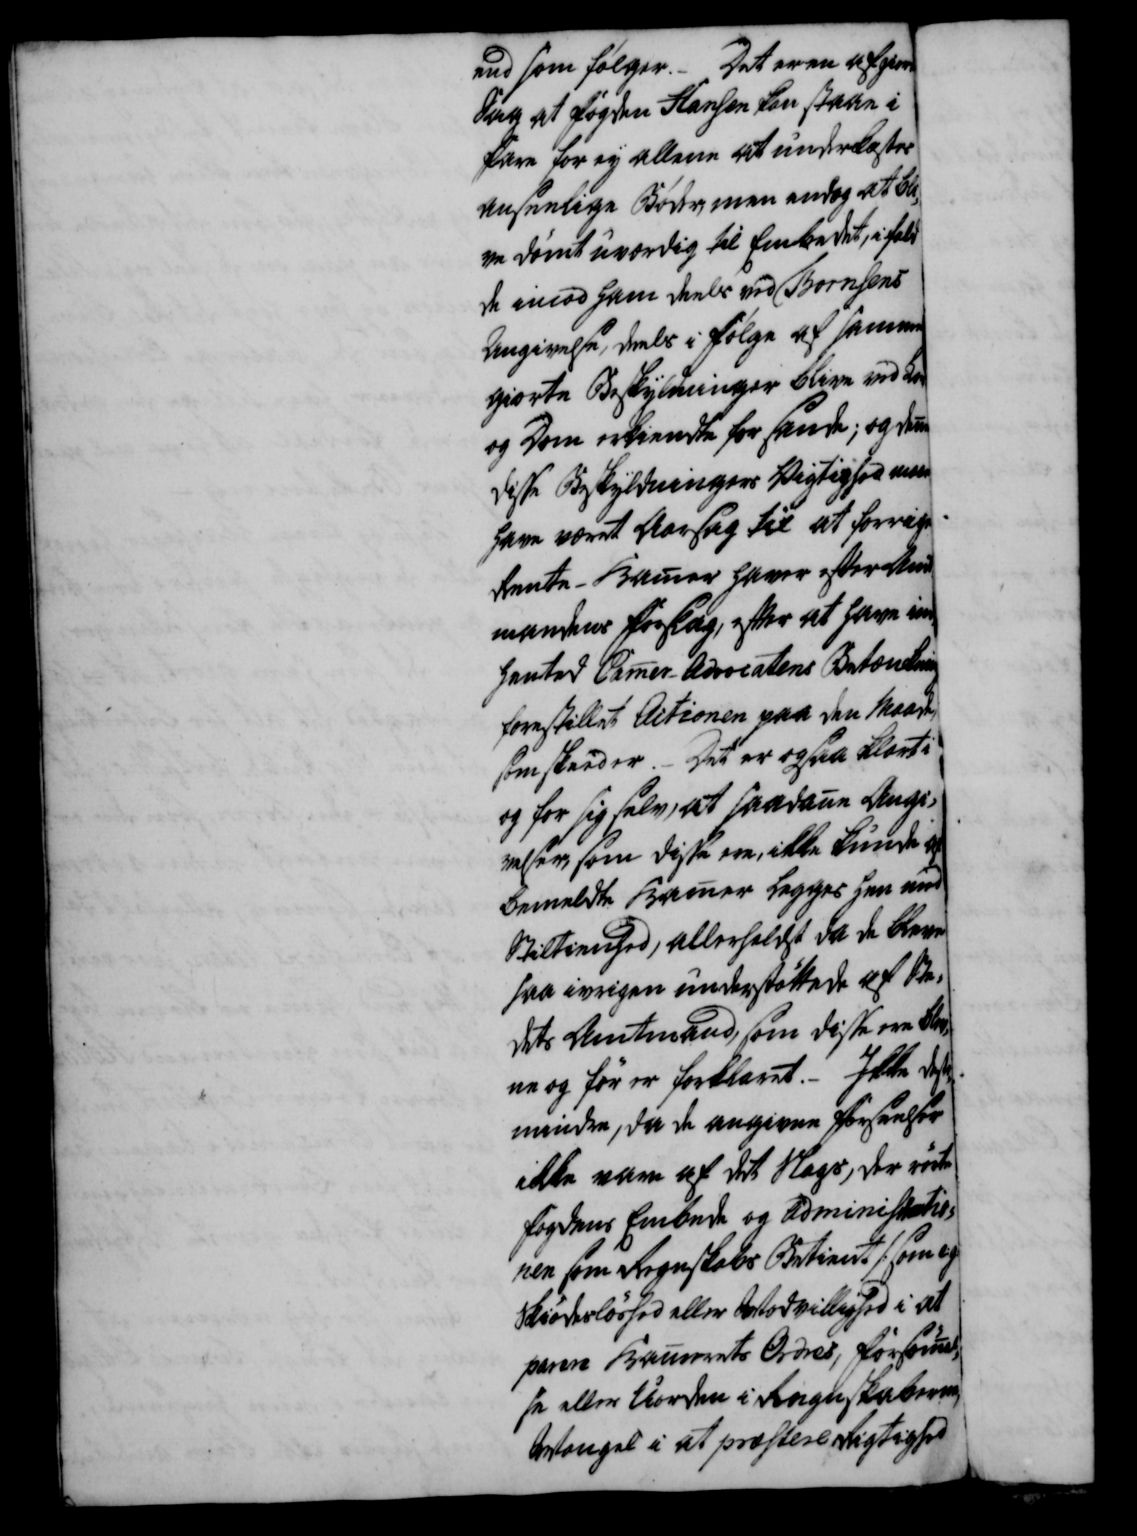 end som følger. - Det er en afgiort
Sag at Fogden Hansen kan staae i
Fare for ej allene at underkastes
anseelige Bøder, men endog at bli,
ve dømt uværdig til Embedet, ifald
de imod ham deels ved Bornsens
Angivelse, deels i Følge af samme
giorte Beskyldninger blive ved Lov
og Dom erkiendte for sande; og denne
disse Beskyldningers Vigtighed maae
have været Aarsag til at forrige
Rente-Kammer haver efter Amt
mandens Forslag, efter at have ind
hented Cammer-Advocatens Betænkning
forestillet Actionen paa den Maade,
som skeed er. - Det er ogsaa klart i
og for sig selv, at saadanne Angi,
velser, som disse ere, ikke kunde af
bemeldte Kammer legges hen med
Stiltienhed, allerhelst da de bleve
saa ivrigen understøttede af Ste,
dets Amtmand, som disse ere blev,
ne og før er forklaret. - Ikke desto,
mindre, da de angivne Forseelser
ikke vare af det Slags, der rørte
Fogdens Embede og Administratio,
nen som Regnskabs Betient /: som eg
Skiødesløshed eller Modvillighed i at
parere Kammerets Ordres, Forsømmel,
se eller Uorden i Regnskaberne,
Mangel i at præstere Rigtighed